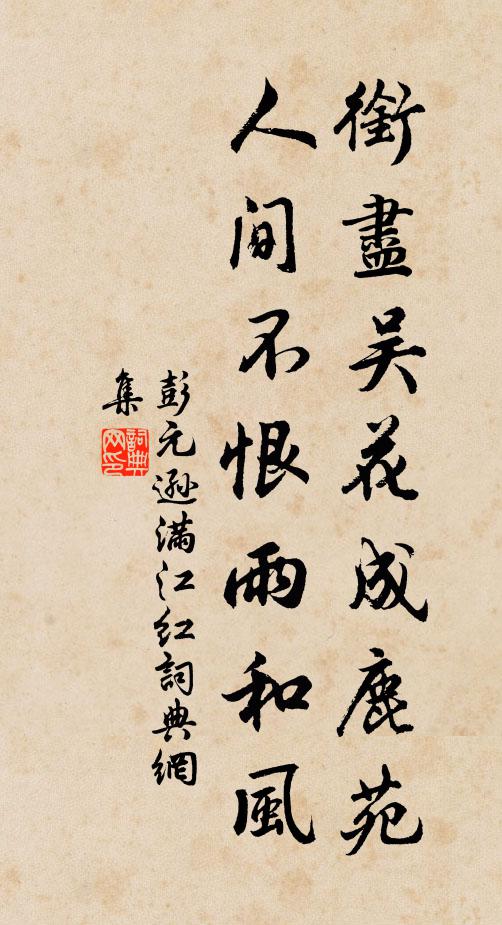 銜盡吴花成鹿苑
人间不恨雨和風
彭元遜满江红詞典網
集
詞典
网印